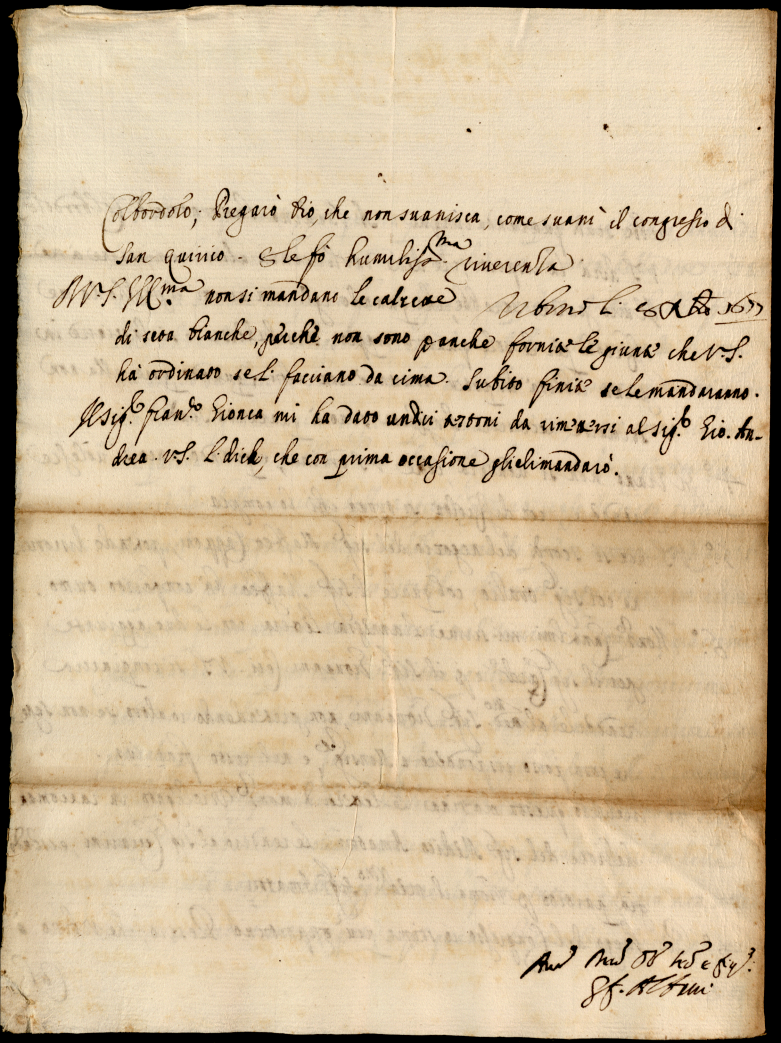 Colbordolo; Pregarò Dio, che non svanisca, come svanì il congresso di
San Quirico. E le fo humiliss.ma riverenza
A V.S. Ill.ma non si mandano le calzette Urbino li 8bre 1677
di seta bianche, perche non sono p anche fornite le giunte che V.S.
ha ordinato se li facciano da cima. Subito finite se le mandaranno.
Il Sig.r Fran.co mi ha dato undici da rimettersi al Sig.r Gio. An-
drea. V.S. L. dich, che con prima occasione glielimandarò.